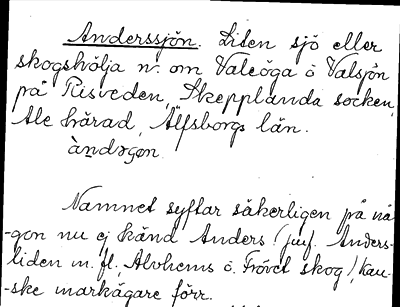 Anderssjön. Liten sjö eller
skogshölja n. om Valeöga o Valsjön
på Risveden, Skepplanda socken,
Ale härad, Älfsborgs län.
àndșon
Namnet syftar säkerligen på nå-
-gon nu ej känd Anders (jmf. Anders-
liden m. fl., Alvhems o. skog), kan-
ske markägare förr.